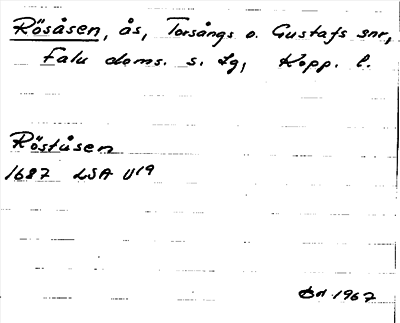 Rösåsen, ås, Torsångs o. Gustafs snr,
Falu doms. s. lg, Kopp. l.
Röståsen
1687 LSA U19
1967